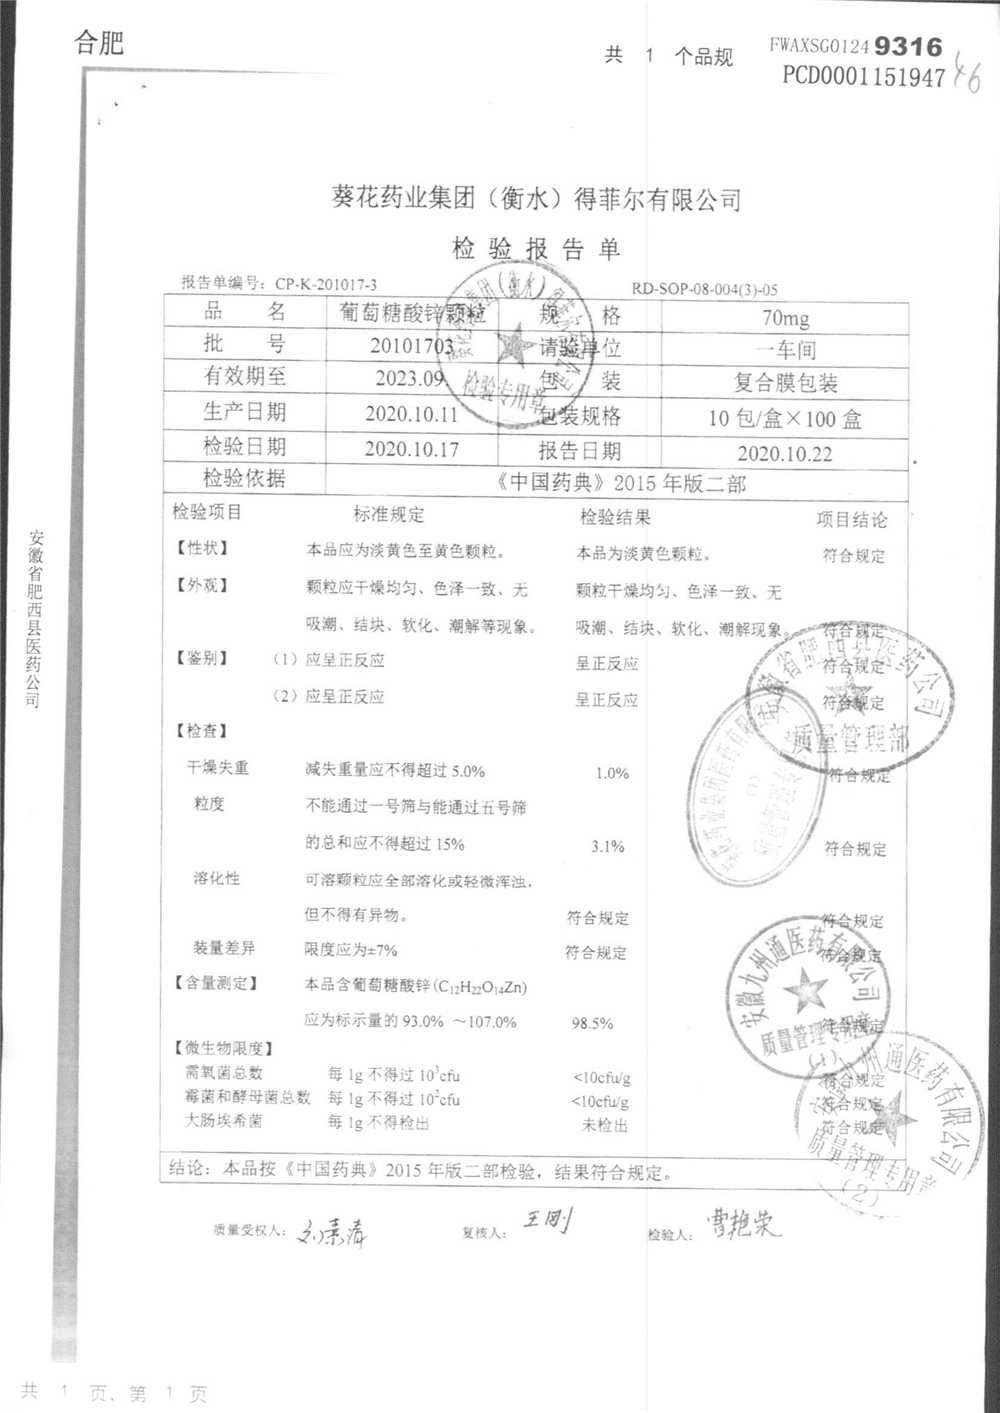 合肥
共 1 个品规
FWAXSG01249316
PCD0001151947
46
葵花药业集团（衡水）得菲尔有限公司
检验报告单
报告单编号：CP-K-201017-3 RD-SOP-08-004(3)-05
品 名 葡萄糖酸锌颗粒 规 格 70mg
批 号 20101703 请验单位 一车间
有效期至 2023.09 包 装 复合膜包装
生产日期 2020.10.11 包装规格 10包/盒×100盒
检验日期 2020.10.17 报告日期 2020.10.22
检验依据 《中国药典》2015年版二部
检验项目 标准规定 检验结果 项目结论
【性状】 本品应为淡黄色至黄色颗粒。 本品为淡黄色颗粒。 符合规定
【外观】 颗粒应干燥均匀、色泽一致、无 颗粒干燥均匀、色泽一致、无
吸潮、结块、软化、潮解等现象。 吸潮、结块、软化、潮解现象。 符合规定
【鉴别】 （1）应呈正反应 呈正反应 符合规定
（2）应呈正反应 呈正反应 符合规定
【检查】
干燥失重 减失重量应不得超过5.0% 1.0% 符合规定
粒度 不能通过一号筛与能通过五号筛
的总和应不得超过15% 3.1% 符合规定
溶化性 可溶颗粒应全部溶化或轻微浑浊，
但不得有异物。 符合规定 符合规定
装量差异 限度应为±7% 符合规定 符合规定
【含量测定】 本品含葡萄糖酸锌(C₁₂H₂₂O₁₄Zn)
应为标示量的93.0% ～107.0% 98.5% 符合规定
【微生物限度】
需氧菌总数 每1g不得过10³cfu <10cfu/g 符合规定
霉菌和酵母菌总数 每1g不得过10²cfu <10cfu/g 符合规定
大肠埃希菌 每1g不得检出 未检出 符合规定
结论：本品按《中国药典》2015年版二部检验，结果符合规定。
质量受权人： 复核人：王刚 检验人：曹艳荣
检验专用章
安徽省肥西县医药公司
质量管理部
安徽九州通医药有限公司
质量管理专用章
(1)
安徽九州通医药有限公司
质量管理专用章
(2)
安徽省肥西县医药公司
共 1 页、第 1 页